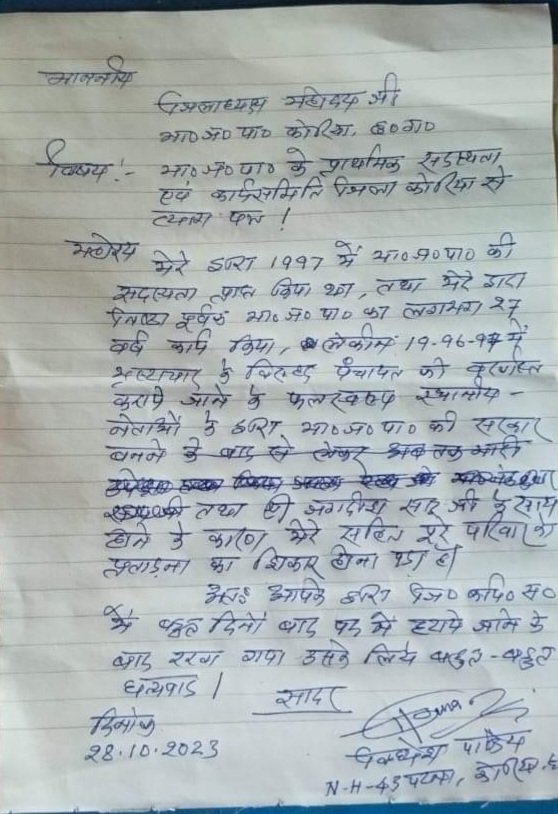 माननीय
जिलाध्यक्ष महोदय जी
भा०ज०पा० कोरिया, छ०ग०
विषय :- भा०ज०पा० के प्राथमिक सदस्यता
एवं कार्यसमिति जिला कोरिया से
त्याग पत्र !
महोदय
मेरे द्वारा 1997 में भा०ज०पा० की
सदस्यता प्राप्त किया था, तथा मेरे द्वारा
निष्ठा पूर्वक भा०ज०पा० का लगभग 27
वर्ष कार्य किया, लेकीन 19-96-97 में
भ्रष्टाचार के विरुद्ध पंचायत को बरखास्त
कराये जाने के फलस्वरूप स्थानीय -
नेताओं के द्वारा भा०ज०पा० की सरकार
बनने के बाद से लेकर अब तक भारी
तथा ही जगदीश सार जी के साथ
होने के कारण मेरे सहित पूरे परिवार को
प्रताड़ना का शिकार होना पड़ा है।
अतः आपके द्वारा जि० कार्य० स०
में बहुत दिनों बाद पद में हटाये जाने के
बाद रखा गया उसके लिये बहुत-बहुत
धन्यवाद |
सादर
दिनांक
28.10.2023
पाण्डेय
N-H-43 पटना, कोरिया